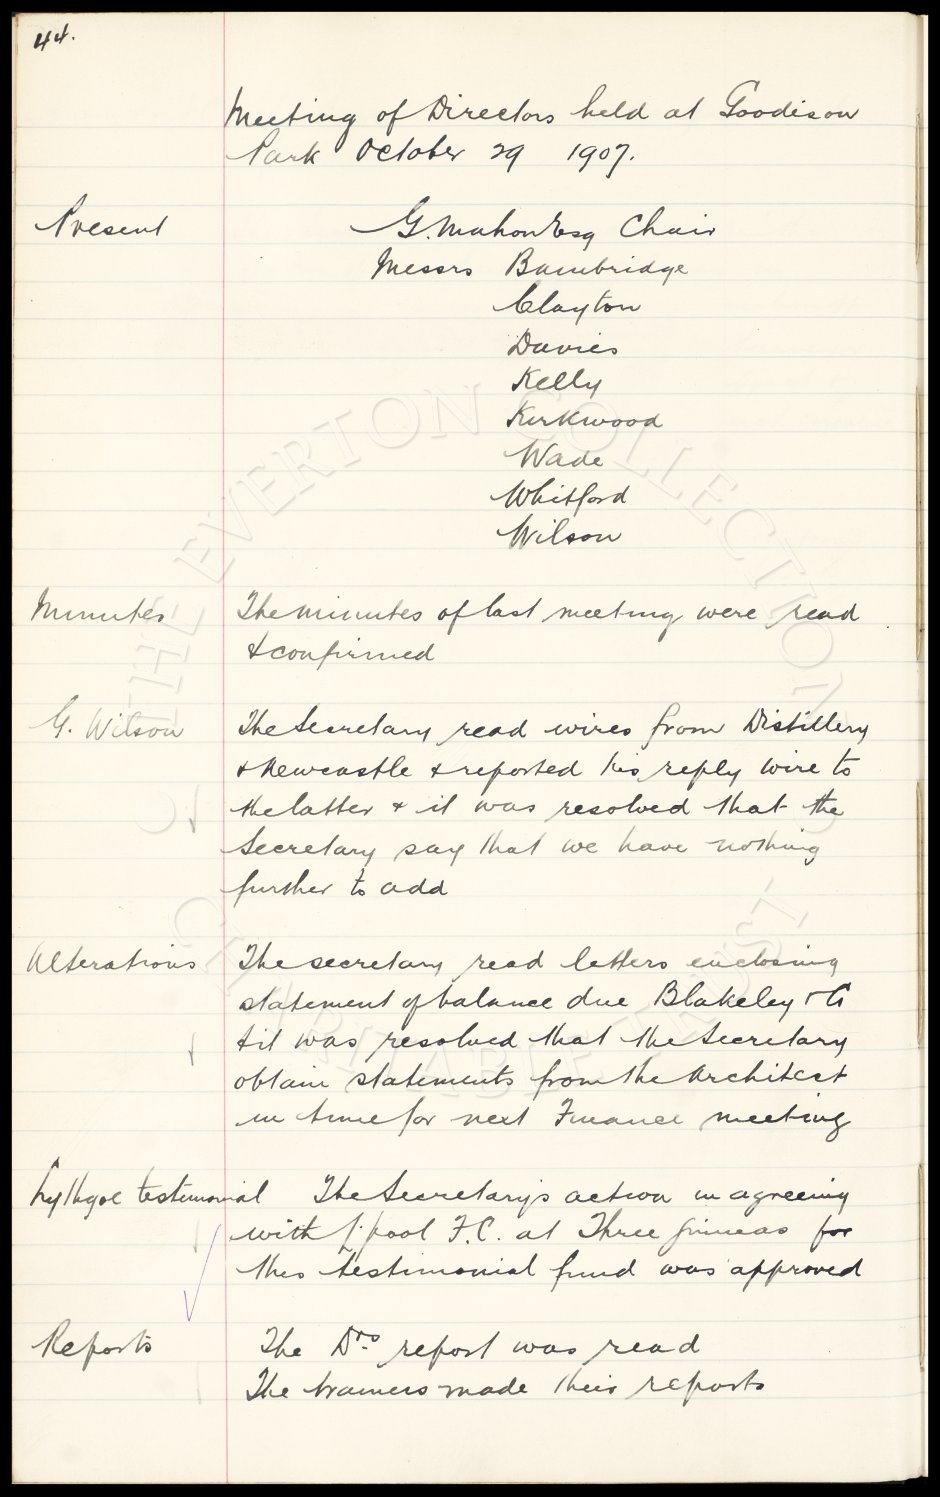 44.
Meeting of Directors held at Goodison
Park October 29 1907.
Present G. Mahon Esq Chair
Messrs Bainbridge
Clayton
Davies
Kelly
Kirkwood
Wade
Whitford
Wilson
Minutes The minutes of last meeting were read
& confirmed
G. Wilson The Secretary read wires from Distillery
& Newcastle & reported his reply wire to
the latter & it was resolved that the
Secretary say that we have nothing
further to add
Alterations The secretary read letters enclosing
statement of balance due Blakeley & Co
& it was resolved that the Secretary
obtain statements from the Architect
in time for next Finance meeting
Lythgoe testimonial The Secretary's action in agreeing
with L'pool F.C. at Three guineas for
this testimonial fund was approved
Reports The Drs report was read
The trainers made their reports
THE EVERTON COLLECTION
CHARITABLE TRUST